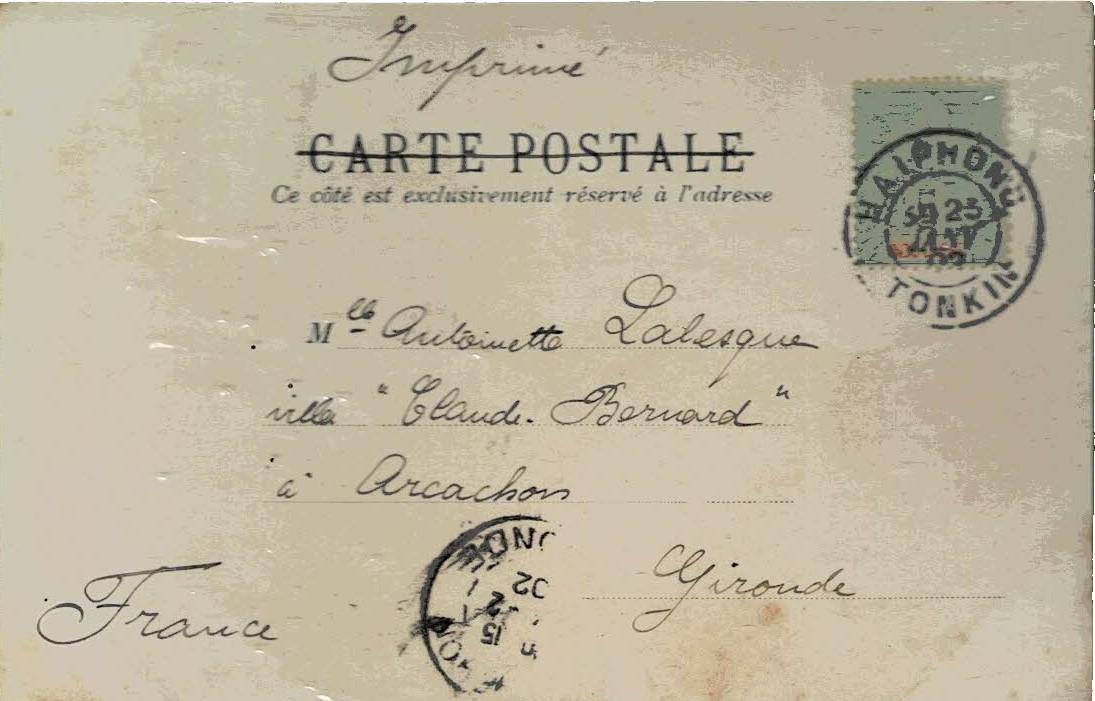 Imprimé
CARTE POSTALE
Ce côté est exclusivement réservé à l'adresse
HAIPHONG
25
JANV
02
TONKIN
Mlle Antoinette Lalesque
villa "Claude-Bernard"
à Arcachon
Gironde
France
15
02